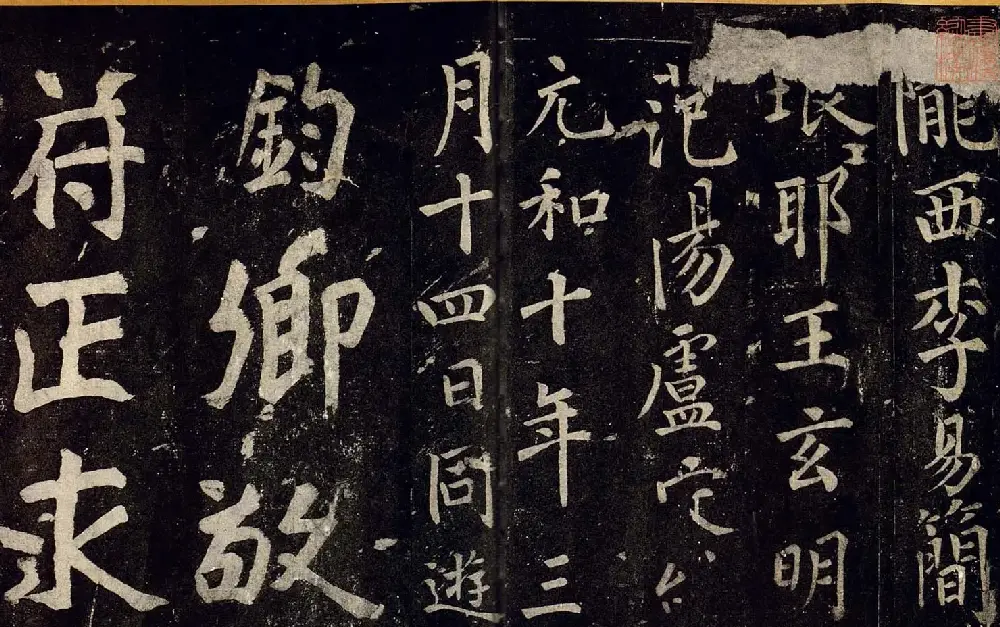 隴西李易簡
琅耶王玄明
范陽盧定
元和十年三
月十四日同遊
鈞卿敬
符正求